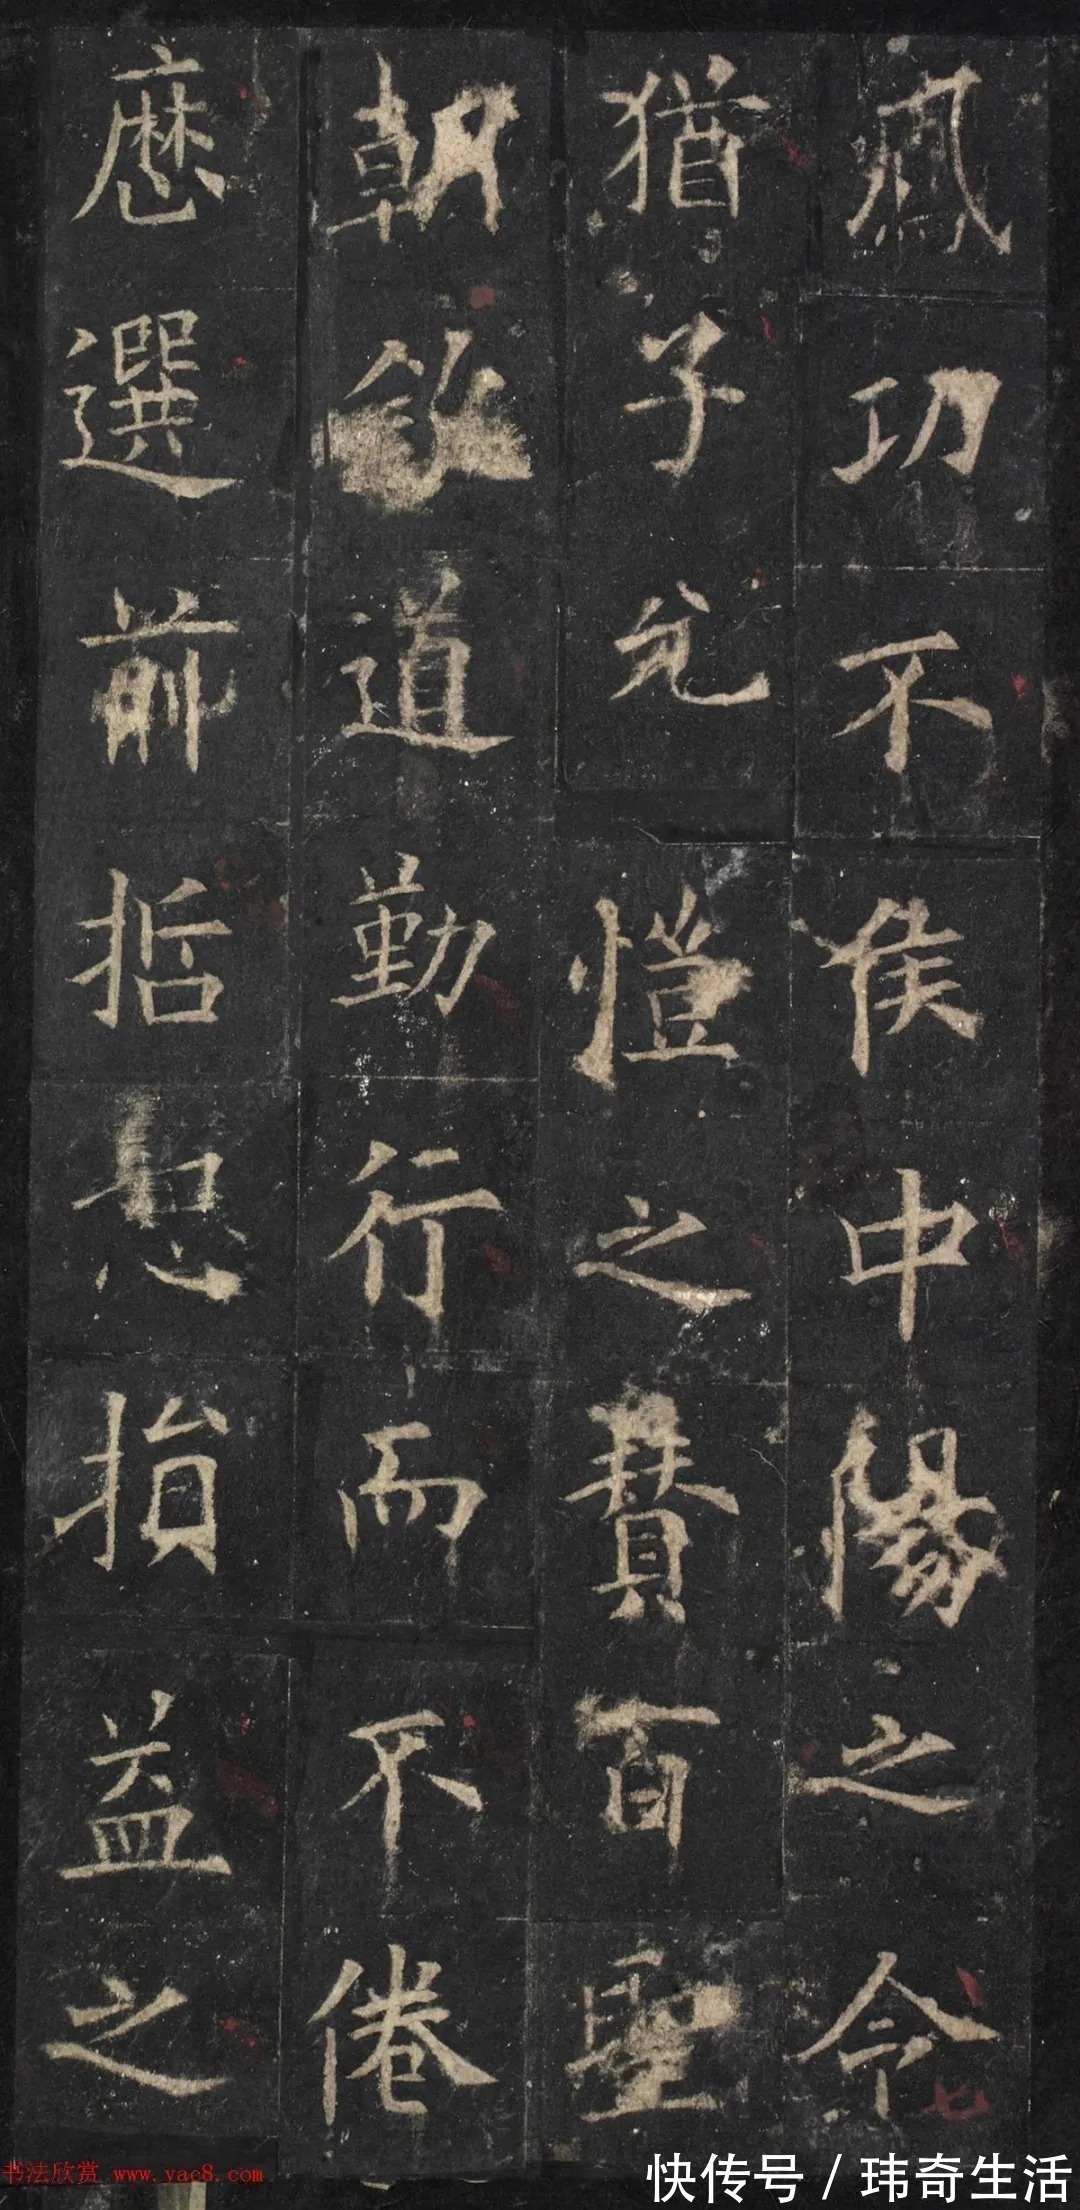 功不侯中陽之令
猶子愷之賛百聖
朝道勤行而不倦
歷選前哲損益之
书法欣赏 www.yac8.com
快传号 / 玮奇生活